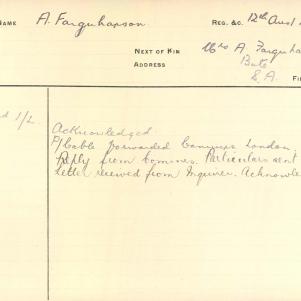 NAME A. Farquharson REG. &C. 12th Aust
NEXT OF KIN Mrs A. Farquha
ADDRESS Bute
S. A.
Acknowledged.
P/Cable forwarded Commrs London,
Reply from Commrs. Particulars sent
Letter received from Inquirer. Acknowle